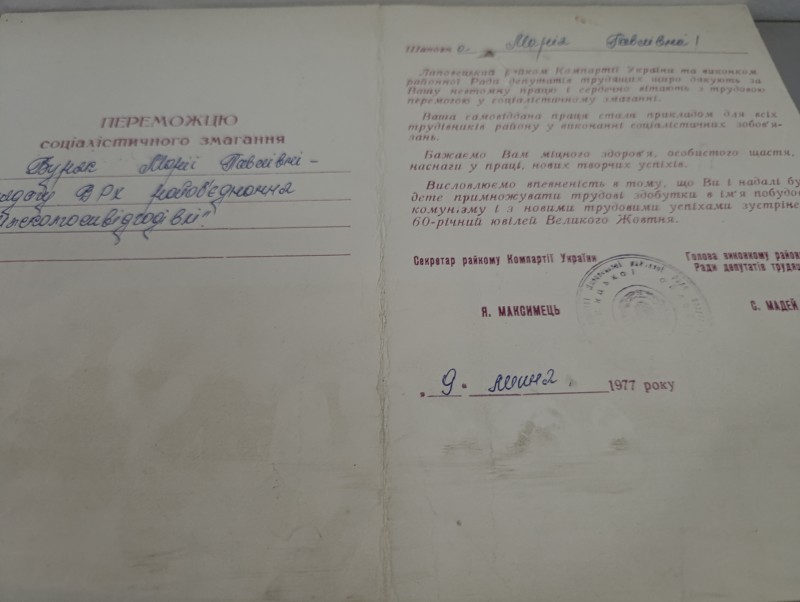 ПЕРЕМОЖЦЮ
соціалістичного змагання
Буряк Марії Павлівні -
ВРХ
Шановна Марія Павлівна!
Лановецький райком Компартії України та виконком
районної Ради депутатів трудящих щиро дякують за
Вашу невтомну працю і сердечно вітають з трудовою
перемогою у соціалістичному змаганні.
Ваша самовіддана праця стала прикладом для всіх
трудівників району у виконанні соціалістичних зобов'я-
зань.
Бажаємо Вам міцного здоров'я, особистого щастя,
наснаги у праці, нових творчих успіхів.
Висловлюємо впевненість в тому, що Ви і надалі бу-
дете примножувати трудові здобутки в ім'я побудов
комунізму і з новими трудовими успіхами зустріне
60-річний ювілей Великого Жовтня.
Секретар райкому Компартії України
Я. МАКСИМЕЦЬ
Голова виконкому район
Ради депутатів трудящ
С. МАДЕЙ
„ 9 " липня 1977 року